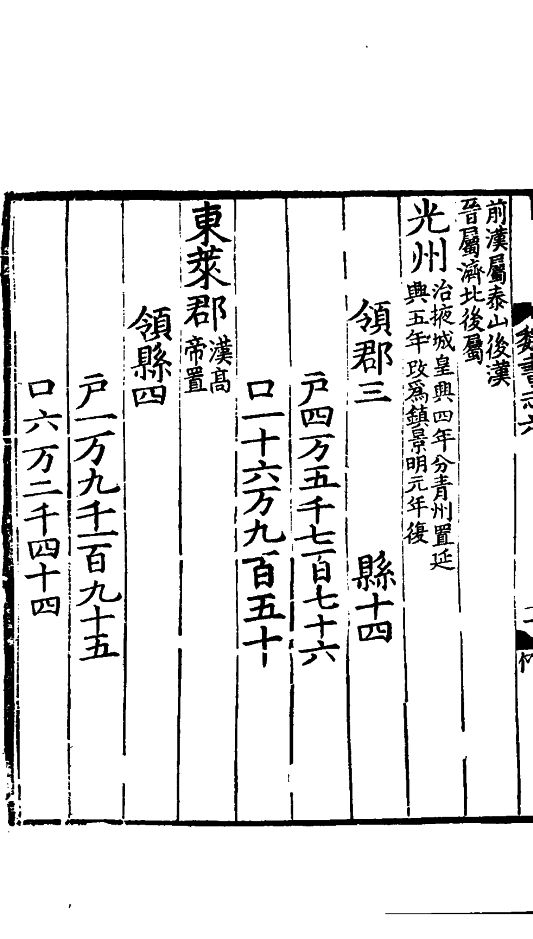 魏書志六
前漢屬泰山後漢
晉屬濟北後屬
光州
治掖城皇興四年分青州置延
興五年攺爲鎮景明元年復
領郡三 縣十四
戸四万五千七百七十六
口一十六万九百五十
東萊郡
漢高
帝置
領縣四
戸一万九千一百九十五
口六万二千四十四